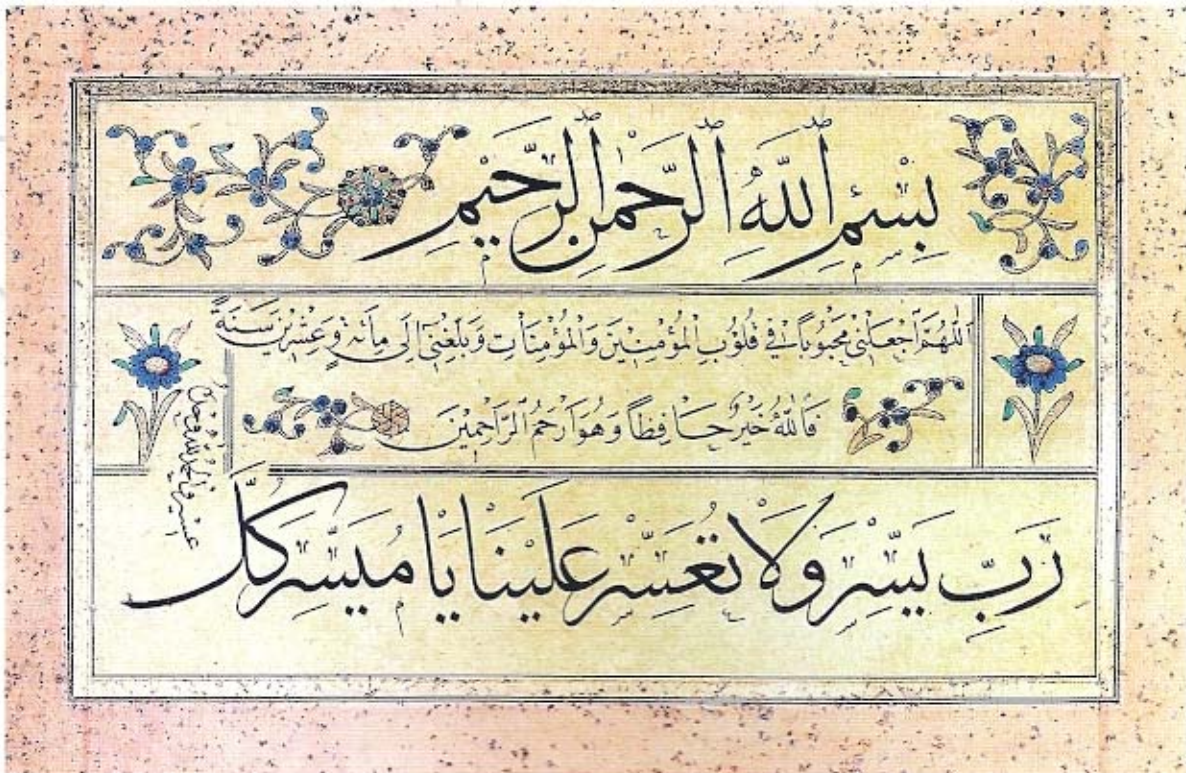 بِسْمِ ٱللّٰهِ ٱلرَّحْمٰنِ ٱلرَّحِيْمِ
اَللّٰهُمَّ ٱجْعَلْنِى مَحْبُوبًا فِى قُلُوْبِ ٱلْمُؤْمِنِيْنَ وَالْمُؤْمِنَاتِ وَبَلِّغْنِى اِلَى مِائَةٍ وَعِشْرِيْنَ سَنَةً
فَاللّٰهُ خَيْرٌ حَافِظًا وَهُوَ اَرْحَمُ ٱلرَّاحِمِيْنَ
رَبِّ يَسِّرْ وَلَا تُعَسِّرْ عَلَيْنَا يَا مُيَسِّرَ كُلِّ
عسير والحمد لله وحده